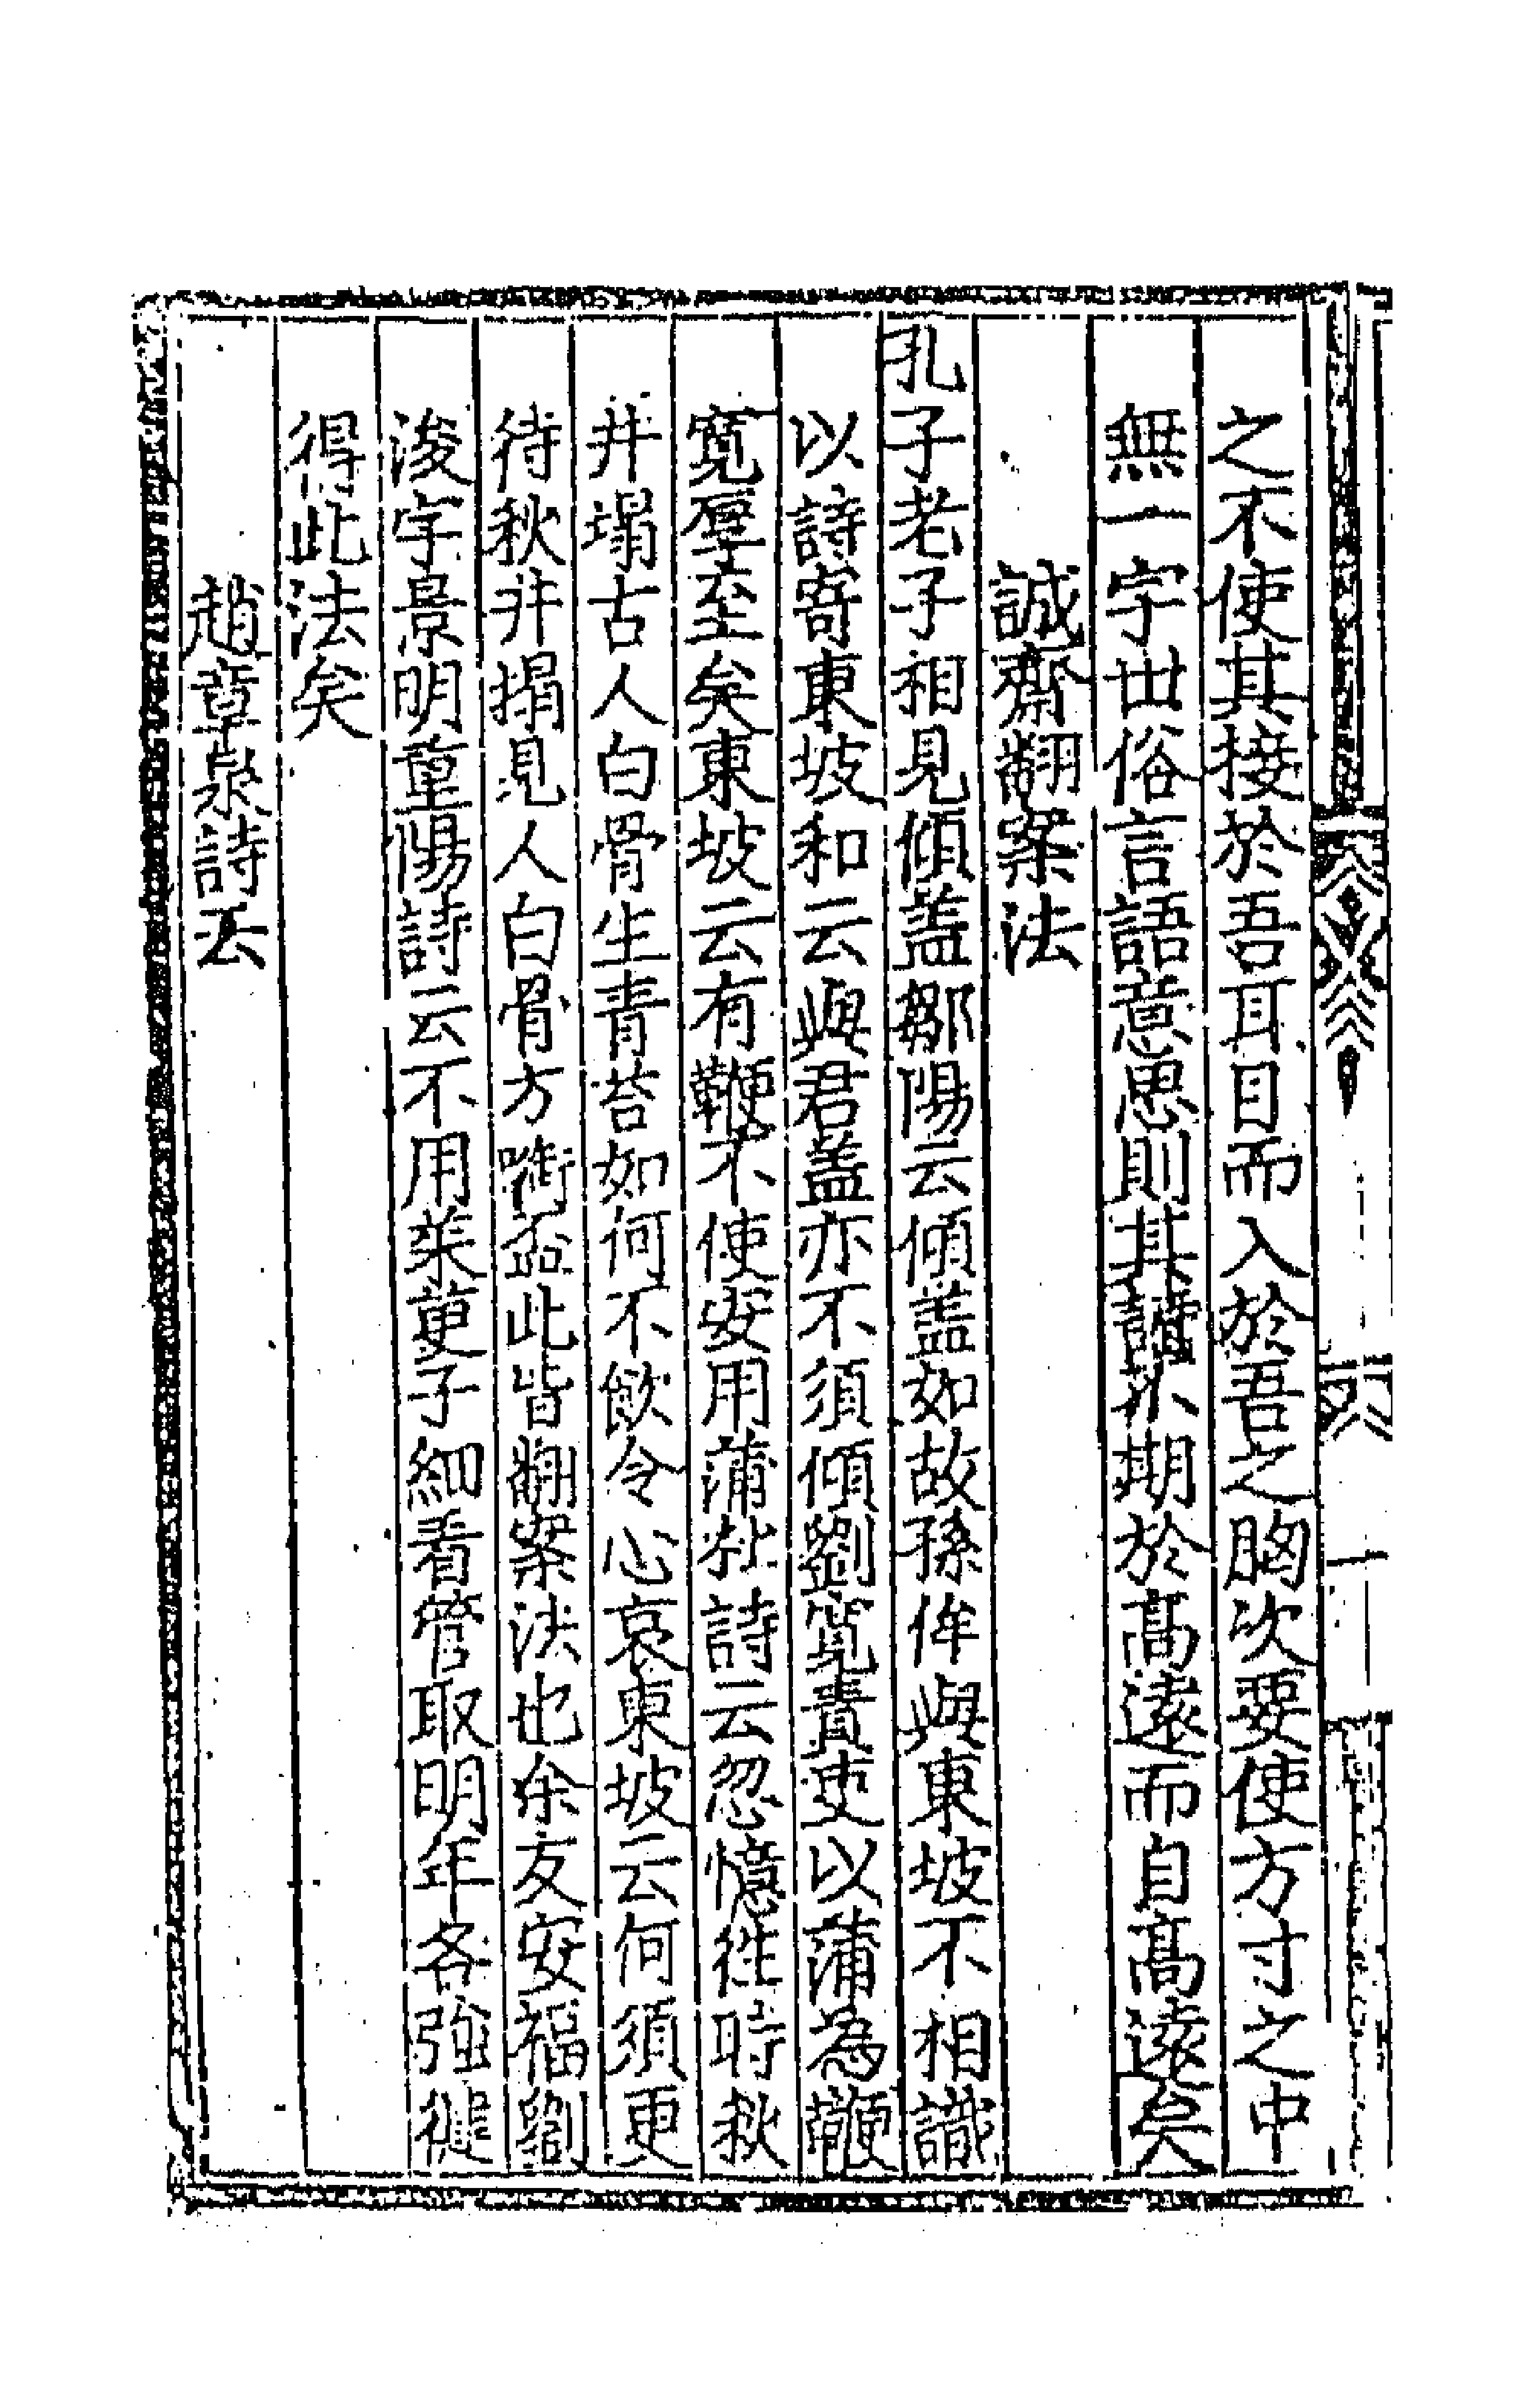 之不使其接於吾耳目而入於吾之胸次要使方寸之中
無一字世俗言語意思則其詩不期於高遠而自高遠矣
誠齋翻案法
孔子老子相見傾蓋鄒陽云傾蓋如故孫侔與東坡不相識
以詩寄東坡和云與君蓋亦不須傾劉寬責吏以蒲為鞭
寬厚至矣東坡云有鞭不使安用蒲杜詩云忽憶往時秋
井塌古人白骨生青苔如何不飲令心哀東坡云何須更
待秋井塌見人白骨方銜盃此皆翻案法也余友安福劉
浚字景明重陽詩云不用茱萸子細看管取明年各強健
得此法矣
趙章泉詩法